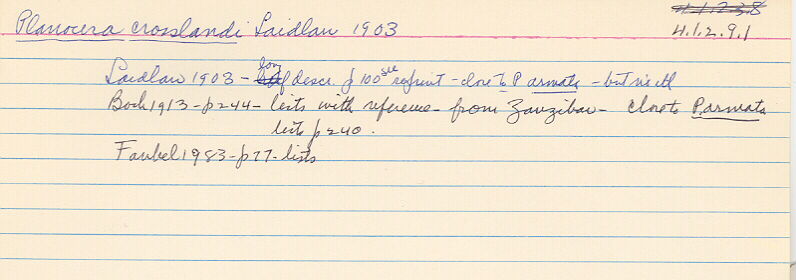 Planocera crosslandi Laidlaw 1903
4.1.2.9.1
Laidlaw 1903 - long descr. p 100 see reprint - close to P armata - but
Bock 1913 - p 244 - lists with reference - from Zanzibar - close to P. armata
lists p 240.
Faubel 1983 - p 77 - lists